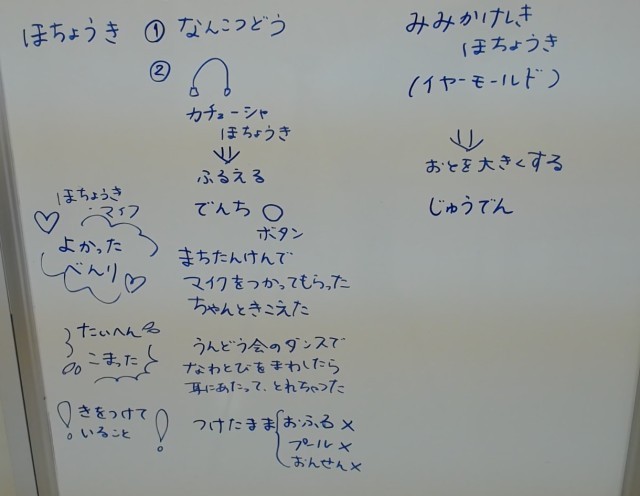 ほちょうき ① なんこつどう
②
カチューシャ
ほちょうき
⇓
ふるえる
でんち ○
ボタン
みみかけしき
ほちょうき
(イヤーモールド)
⇓
おとを大きくする
じゅうでん
ほちょうき
・マイク
よかった
べんり
まちたんけんで
マイクをつかってもらった
ちゃんときこえた
たいへん
こまった
うんどう会のダンスで
なわとびをまわしたら
耳にあたって、とれちゃった
! きをつけて !
いること
つけたまま おふろ ×
プール ×
おんせん ×